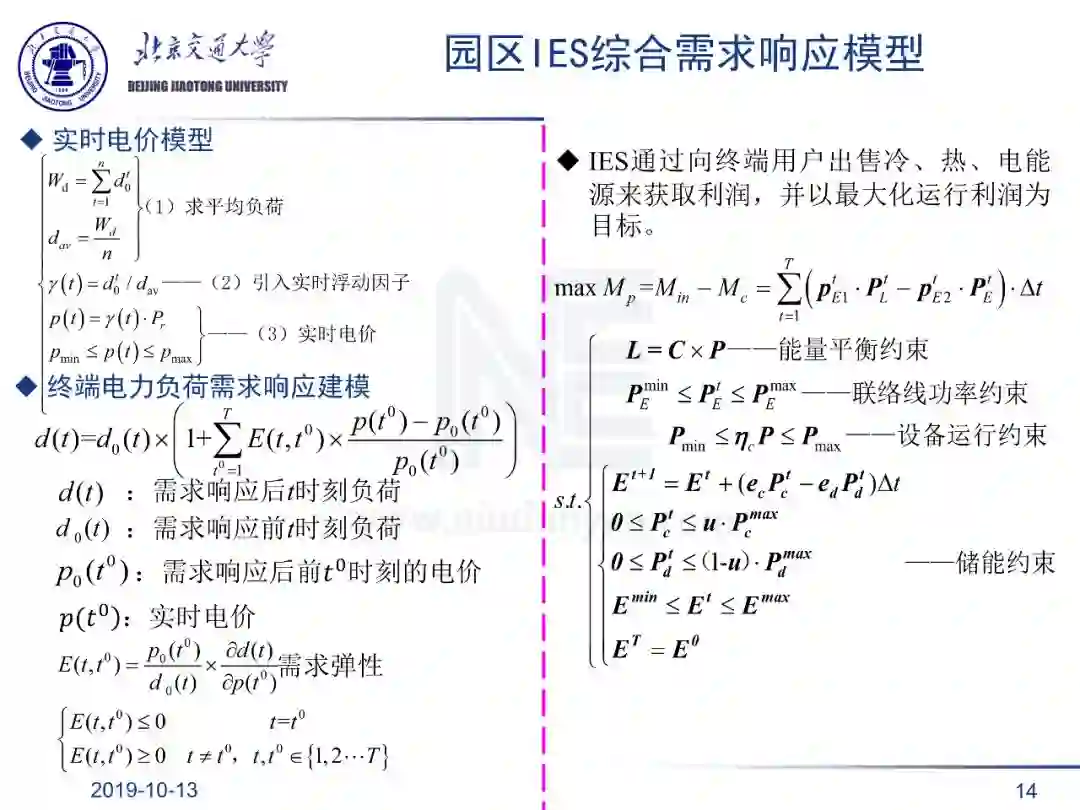 北京交通大学
BEIJING JIAOTONG UNIVERSITY
园区IES综合需求响应模型
◆ 实时电价模型
W_d = ∑_{t=1}^{n} d_0^t
d_{av} = W_d / n
(1)求平均负荷
γ(t) = d_0^t / d_{av} ——(2)引入实时浮动因子
p(t) = γ(t)·P_r
p_{min} ≤ p(t) ≤ p_{max}
——(3)实时电价
◆ 终端电力负荷需求响应建模
d(t)=d_0(t)×(1+∑_{t^0=1}^{T} E(t,t^0)×(p(t^0)−p_0(t^0))/p_0(t^0))
d(t) :需求响应后t时刻负荷
d_0(t) :需求响应前t时刻负荷
p_0(t^0):需求响应后前t^0时刻的电价
p(t^0):实时电价
E(t,t^0)= p_0(t^0)/d_0(t) × ∂d(t)/∂p(t^0) 需求弹性
E(t,t^0)≤0 t=t^0
E(t,t^0)≥0 t≠t^0, t,t^0∈{1,2···T}
2019-10-13
◆ IES通过向终端用户出售冷、热、电能
源来获取利润,并以最大化运行利润为
目标。
max M_p=M_{in} − M_c = ∑_{t=1}^{T}(p_{E1}^t · P_L^t − p_{E2}^t · P_E^t)·Δt
s.t.
L = C × P——能量平衡约束
P_E^{min} ≤ P_E^t ≤ P_E^{max} ——联络线功率约束
P_{min} ≤ η_c P ≤ P_{max} ——设备运行约束
E^{t+1} = E^t + (e_c P_c^t − e_d P_d^t)Δt
0 ≤ P_c^t ≤ u · P_c^{max}
0 ≤ P_d^t ≤ (1-u) · P_d^{max} ——储能约束
E^{min} ≤ E^t ≤ E^{max}
E^T = E^0
14